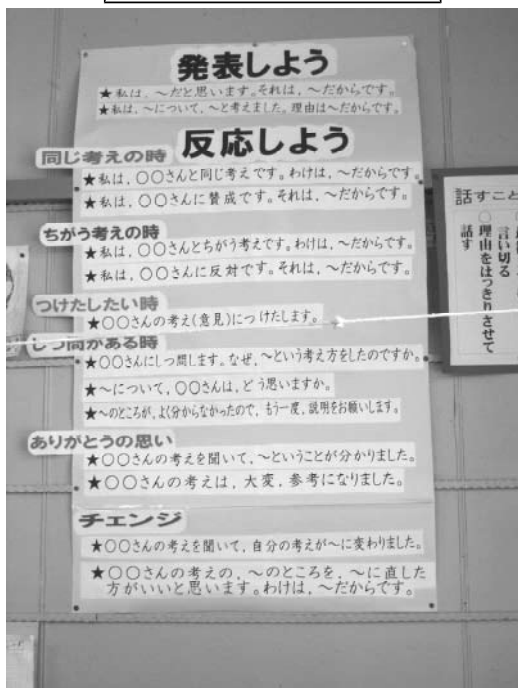 発表しよう
★私は、～だと思います。それは、～だからです。
★私は、～について、～と考えました。理由は～だからです。
反応しよう
同じ考えの時
★私は、〇〇さんと同じ考えです。わけは、～だからです。
★私は、〇〇さんに賛成です。それは、～だからです。
ちがう考えの時
★私は、〇〇さんとちがう考えです。わけは、～だからです。
★私は、〇〇さんに反対です。それは、～だからです。
つけたしたい時
★〇〇さんの考え(意見)につけたします。
しつ問がある時
★〇〇さんにしつ問します。なぜ、～という考え方をしたのですか。
★～について、〇〇さんは、どう思いますか。
★～のところが、よく分からなかったので、もう一度、説明をお願いします。
ありがとうの思い
★〇〇さんの考えを聞いて、～ということが分かりました。
★〇〇さんの考えは、大変、参考になりました。
チェンジ
★〇〇さんの考えを聞いて、自分の考えが～に変わりました。
★〇〇さんの考えの、～のところを、～に直した
方がいいと思います。わけは、～だからです。
話すこと
言い切る
〇理由をはっきりさせて
話す